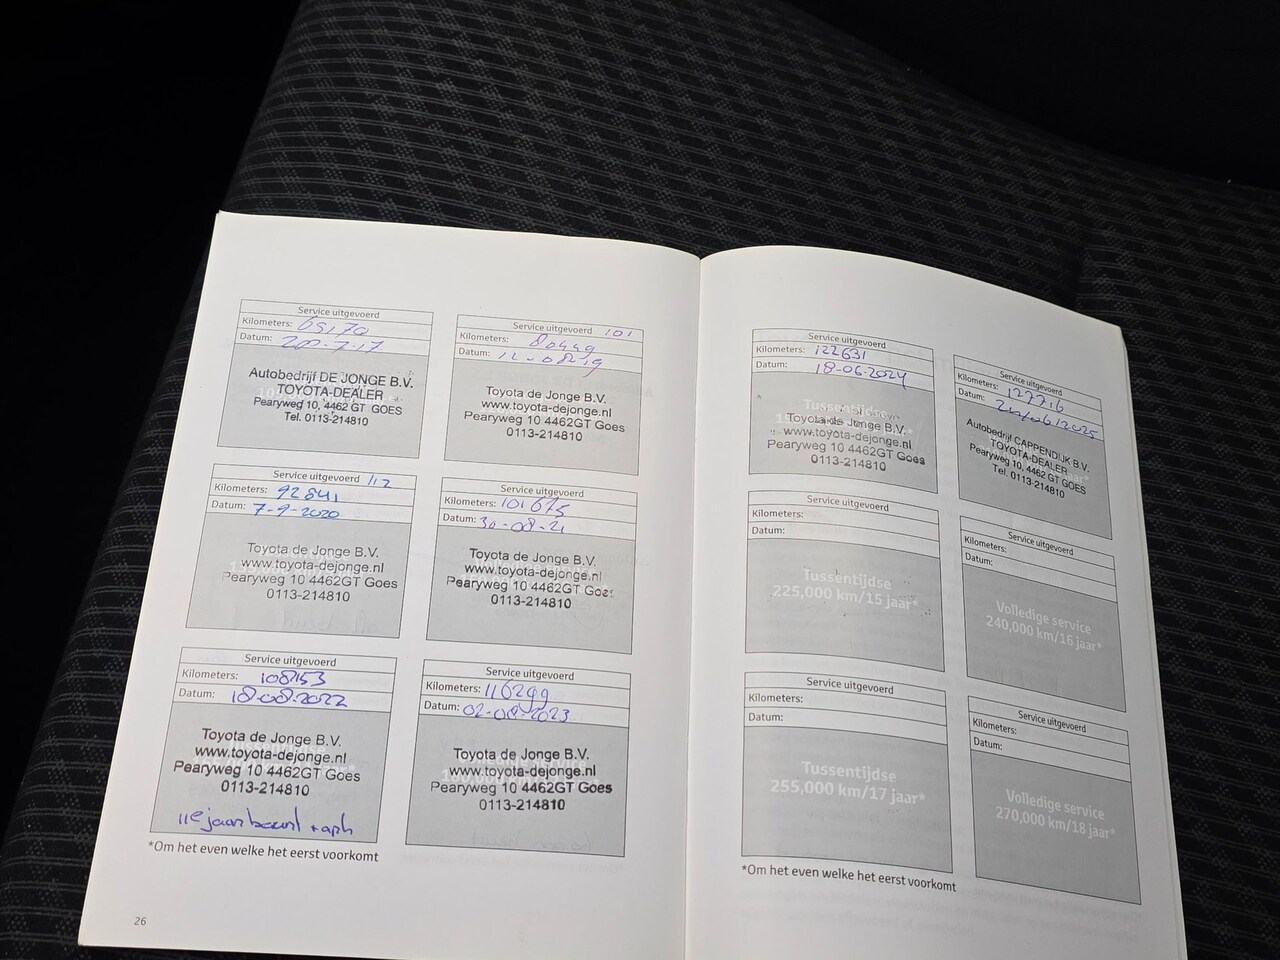 Service uitgevoerd
Kilometers: 65170
Datum: 20-7-17
Autobedrijf DE JONGE B.V.
TOYOTA-DEALER
Pearyweg 10, 4462 GT GOES
Tel. 0113-214810
Service uitgevoerd 101
Kilometers: 80449
Datum: 12-08-19
Toyota de Jonge B.V.
www.toyota-dejonge.nl
Pearyweg 10 4462GT Goes
0113-214810
Service uitgevoerd 112
Kilometers: 92841
Datum: 7-9-2020
Toyota de Jonge B.V.
www.toyota-dejonge.nl
Pearyweg 10 4462GT Goes
0113-214810
Service uitgevoerd
Kilometers: 101675
Datum: 30-08-21
Toyota de Jonge B.V.
www.toyota-dejonge.nl
Pearyweg 10 4462GT Goes
0113-214810
Service uitgevoerd
Kilometers: 108153
Datum: 18-08-2022
Toyota de Jonge B.V.
www.toyota-dejonge.nl
Pearyweg 10 4462GT Goes
0113-214810
11e jaar beurt + apk
Service uitgevoerd
Kilometers: 116299
Datum: 02-08-2023
Toyota de Jonge B.V.
www.toyota-dejonge.nl
Pearyweg 10 4462GT Goes
0113-214810
*Om het even welke het eerst voorkomt
26
Service uitgevoerd
Kilometers: 122631
Datum: 18-06-2024
Tussentijdse
Toyota de Jonge B.V.
www.toyota-dejonge.nl
Pearyweg 10 4462GT Goes
0113-214810
Service uitgevoerd
Kilometers: 127716
Datum: 24/06/2025
Autobedrijf CAPPENDIJK B.V.
TOYOTA-DEALER
Pearyweg 10, 4462 GT GOES
Tel. 0113-214810
Service uitgevoerd
Kilometers:
Datum:
Tussentijdse
225,000 km/15 jaar*
Service uitgevoerd
Kilometers:
Datum:
Volledige service
240,000 km/16 jaar*
Service uitgevoerd
Kilometers:
Datum:
Tussentijdse
255,000 km/17 jaar*
Service uitgevoerd
Kilometers:
Datum:
Volledige service
270,000 km/18 jaar*
*Om het even welke het eerst voorkomt